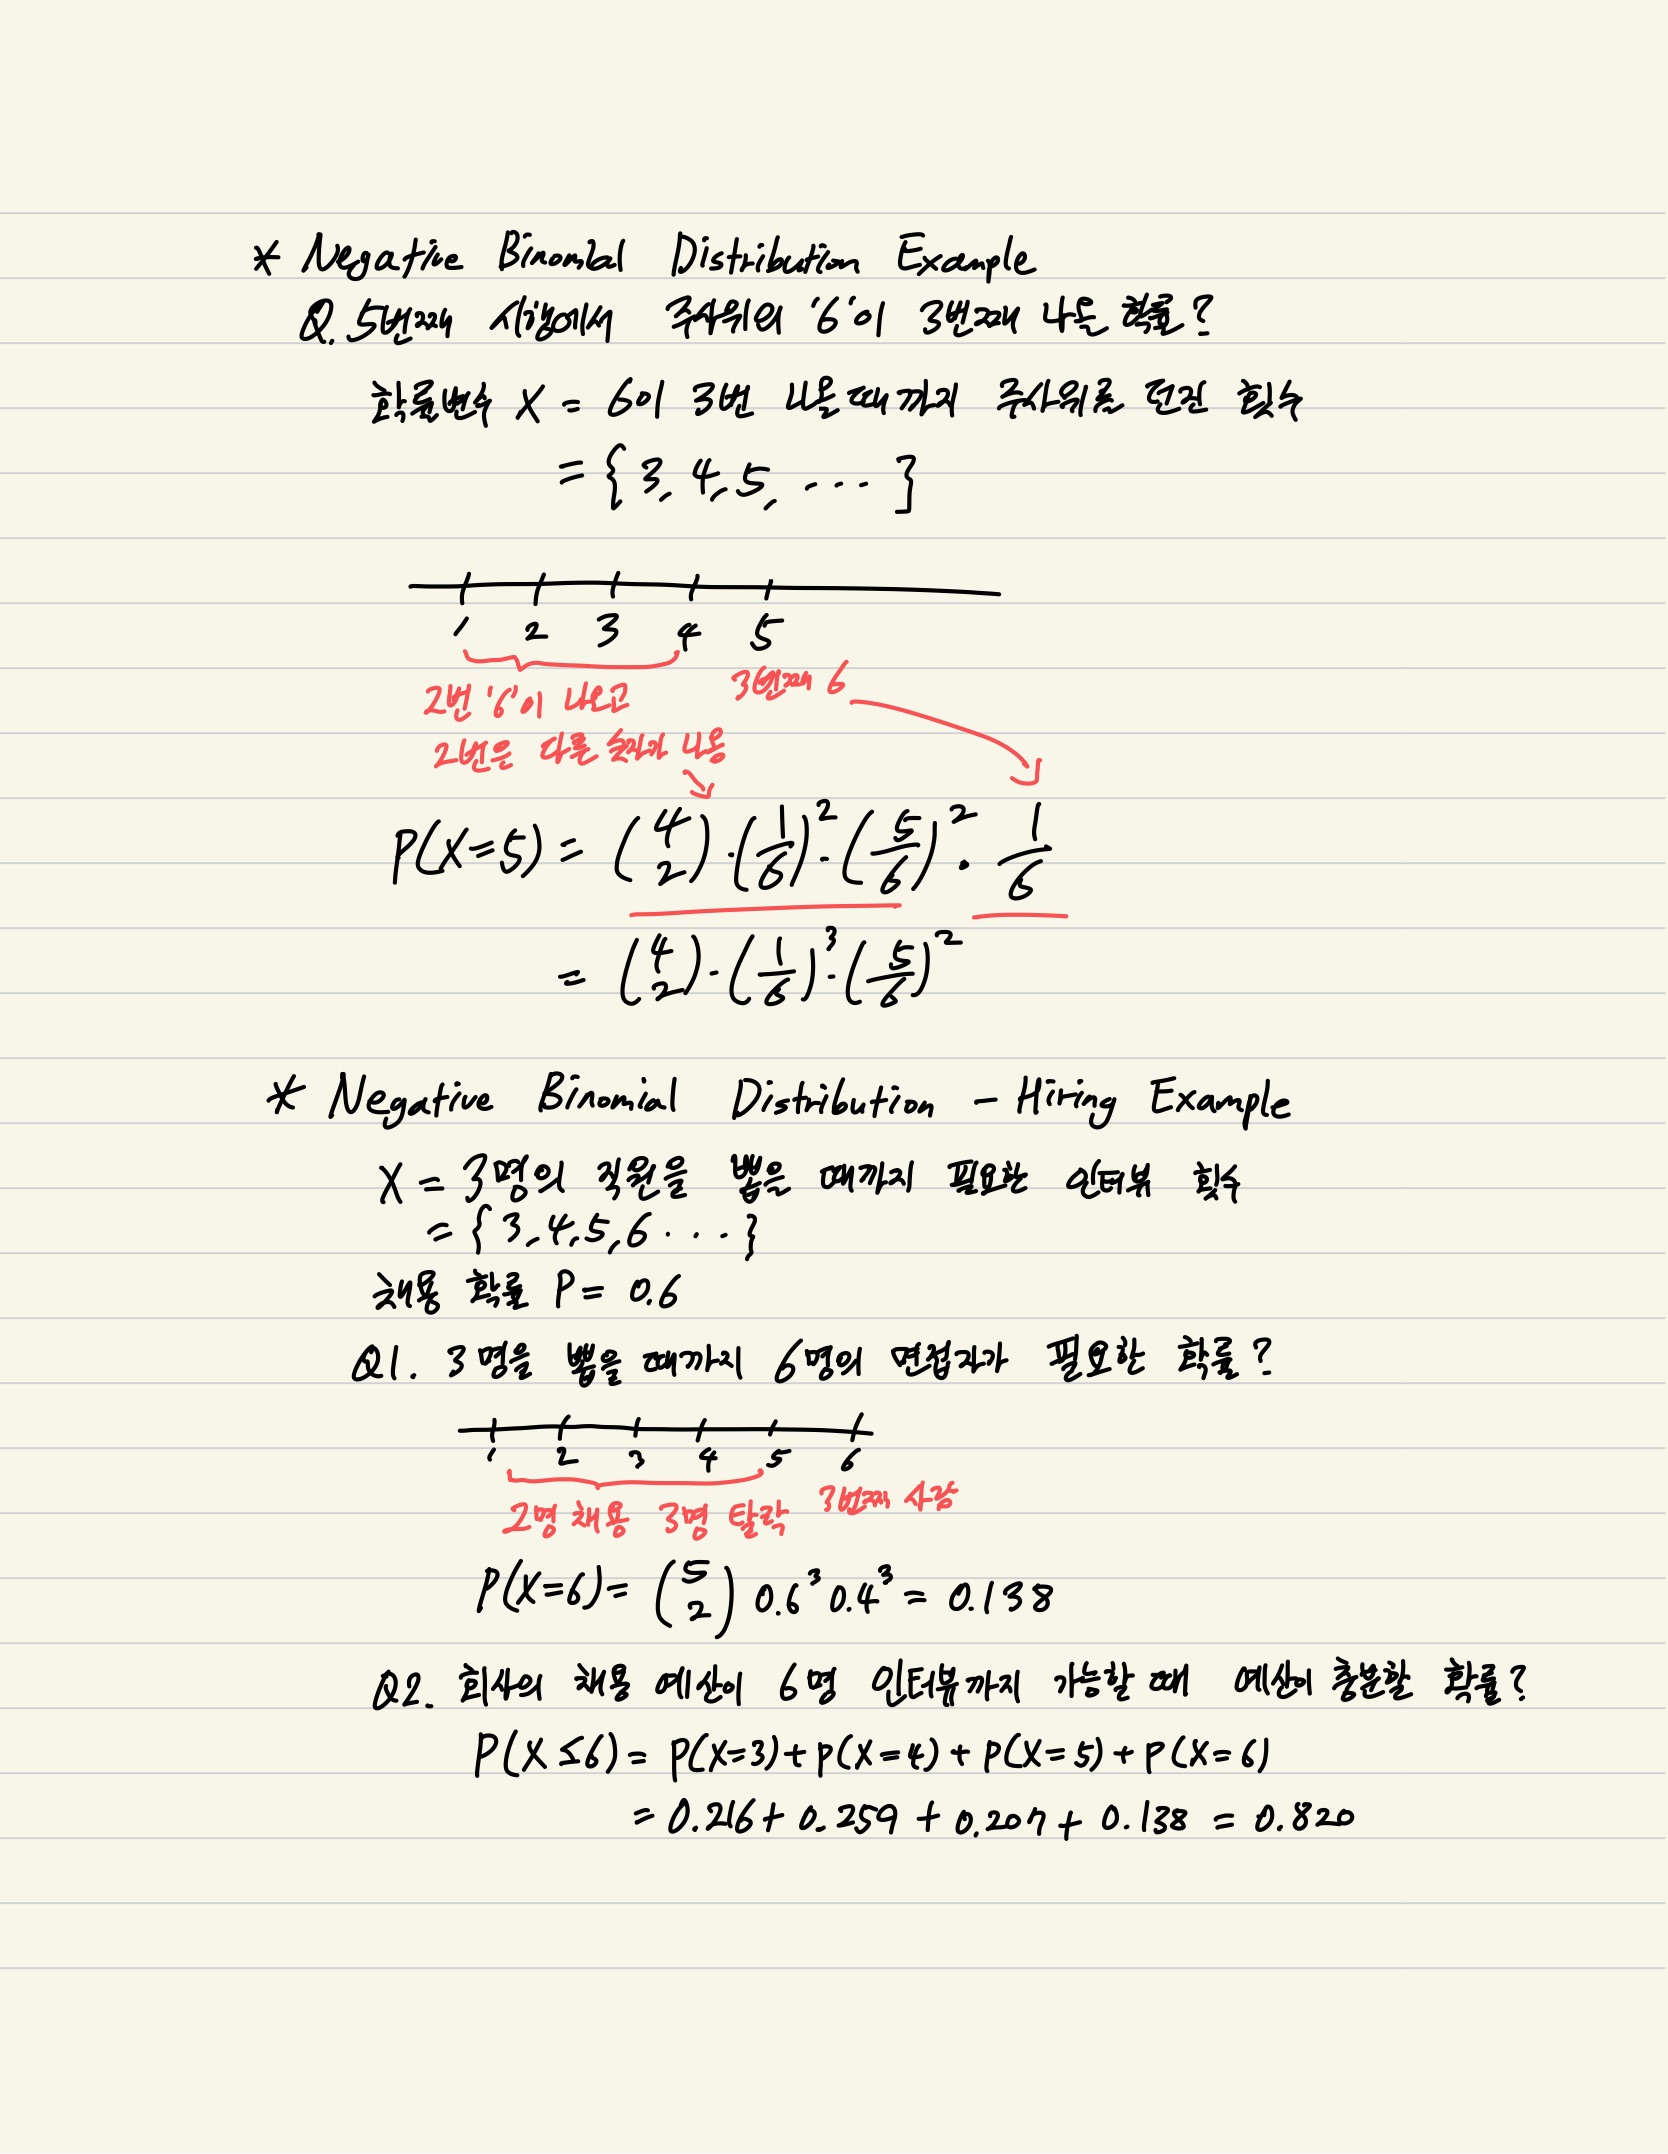 * Negative Binomial Distribution Example
Q. 5번째 시행에서 주사위의 '6'이 3번째 나올 확률?
확률변수 X = 6이 3번 나올 때까지 주사위를 던진 횟수
= { 3, 4, 5, ... }
1 2 3 4 5
2번 '6'이 나오고 3번째 6
2번은 다른 숫자가 나옴
P(X=5) = (4 2) · (1/6)² · (5/6)² · 1/6
= (4 2) · (1/6)³ · (5/6)²
* Negative Binomial Distribution - Hiring Example
X = 3명의 직원을 뽑을 때까지 필요한 인터뷰 횟수
= { 3, 4, 5, 6 ... }
채용 확률 P = 0.6
Q1. 3명을 뽑을 때까지 6명의 면접자가 필요한 확률?
1 2 3 4 5 6
2명 채용 3명 탈락 3번째 사람
P(X=6) = (5 2) 0.6³ 0.4³ = 0.138
Q2. 회사의 채용 예산이 6명 인터뷰까지 가능할 때 예산이 충분할 확률?
P(X ≤ 6) = P(X=3) + P(X=4) + P(X=5) + P(X=6)
= 0.216 + 0.259 + 0.207 + 0.138 = 0.820